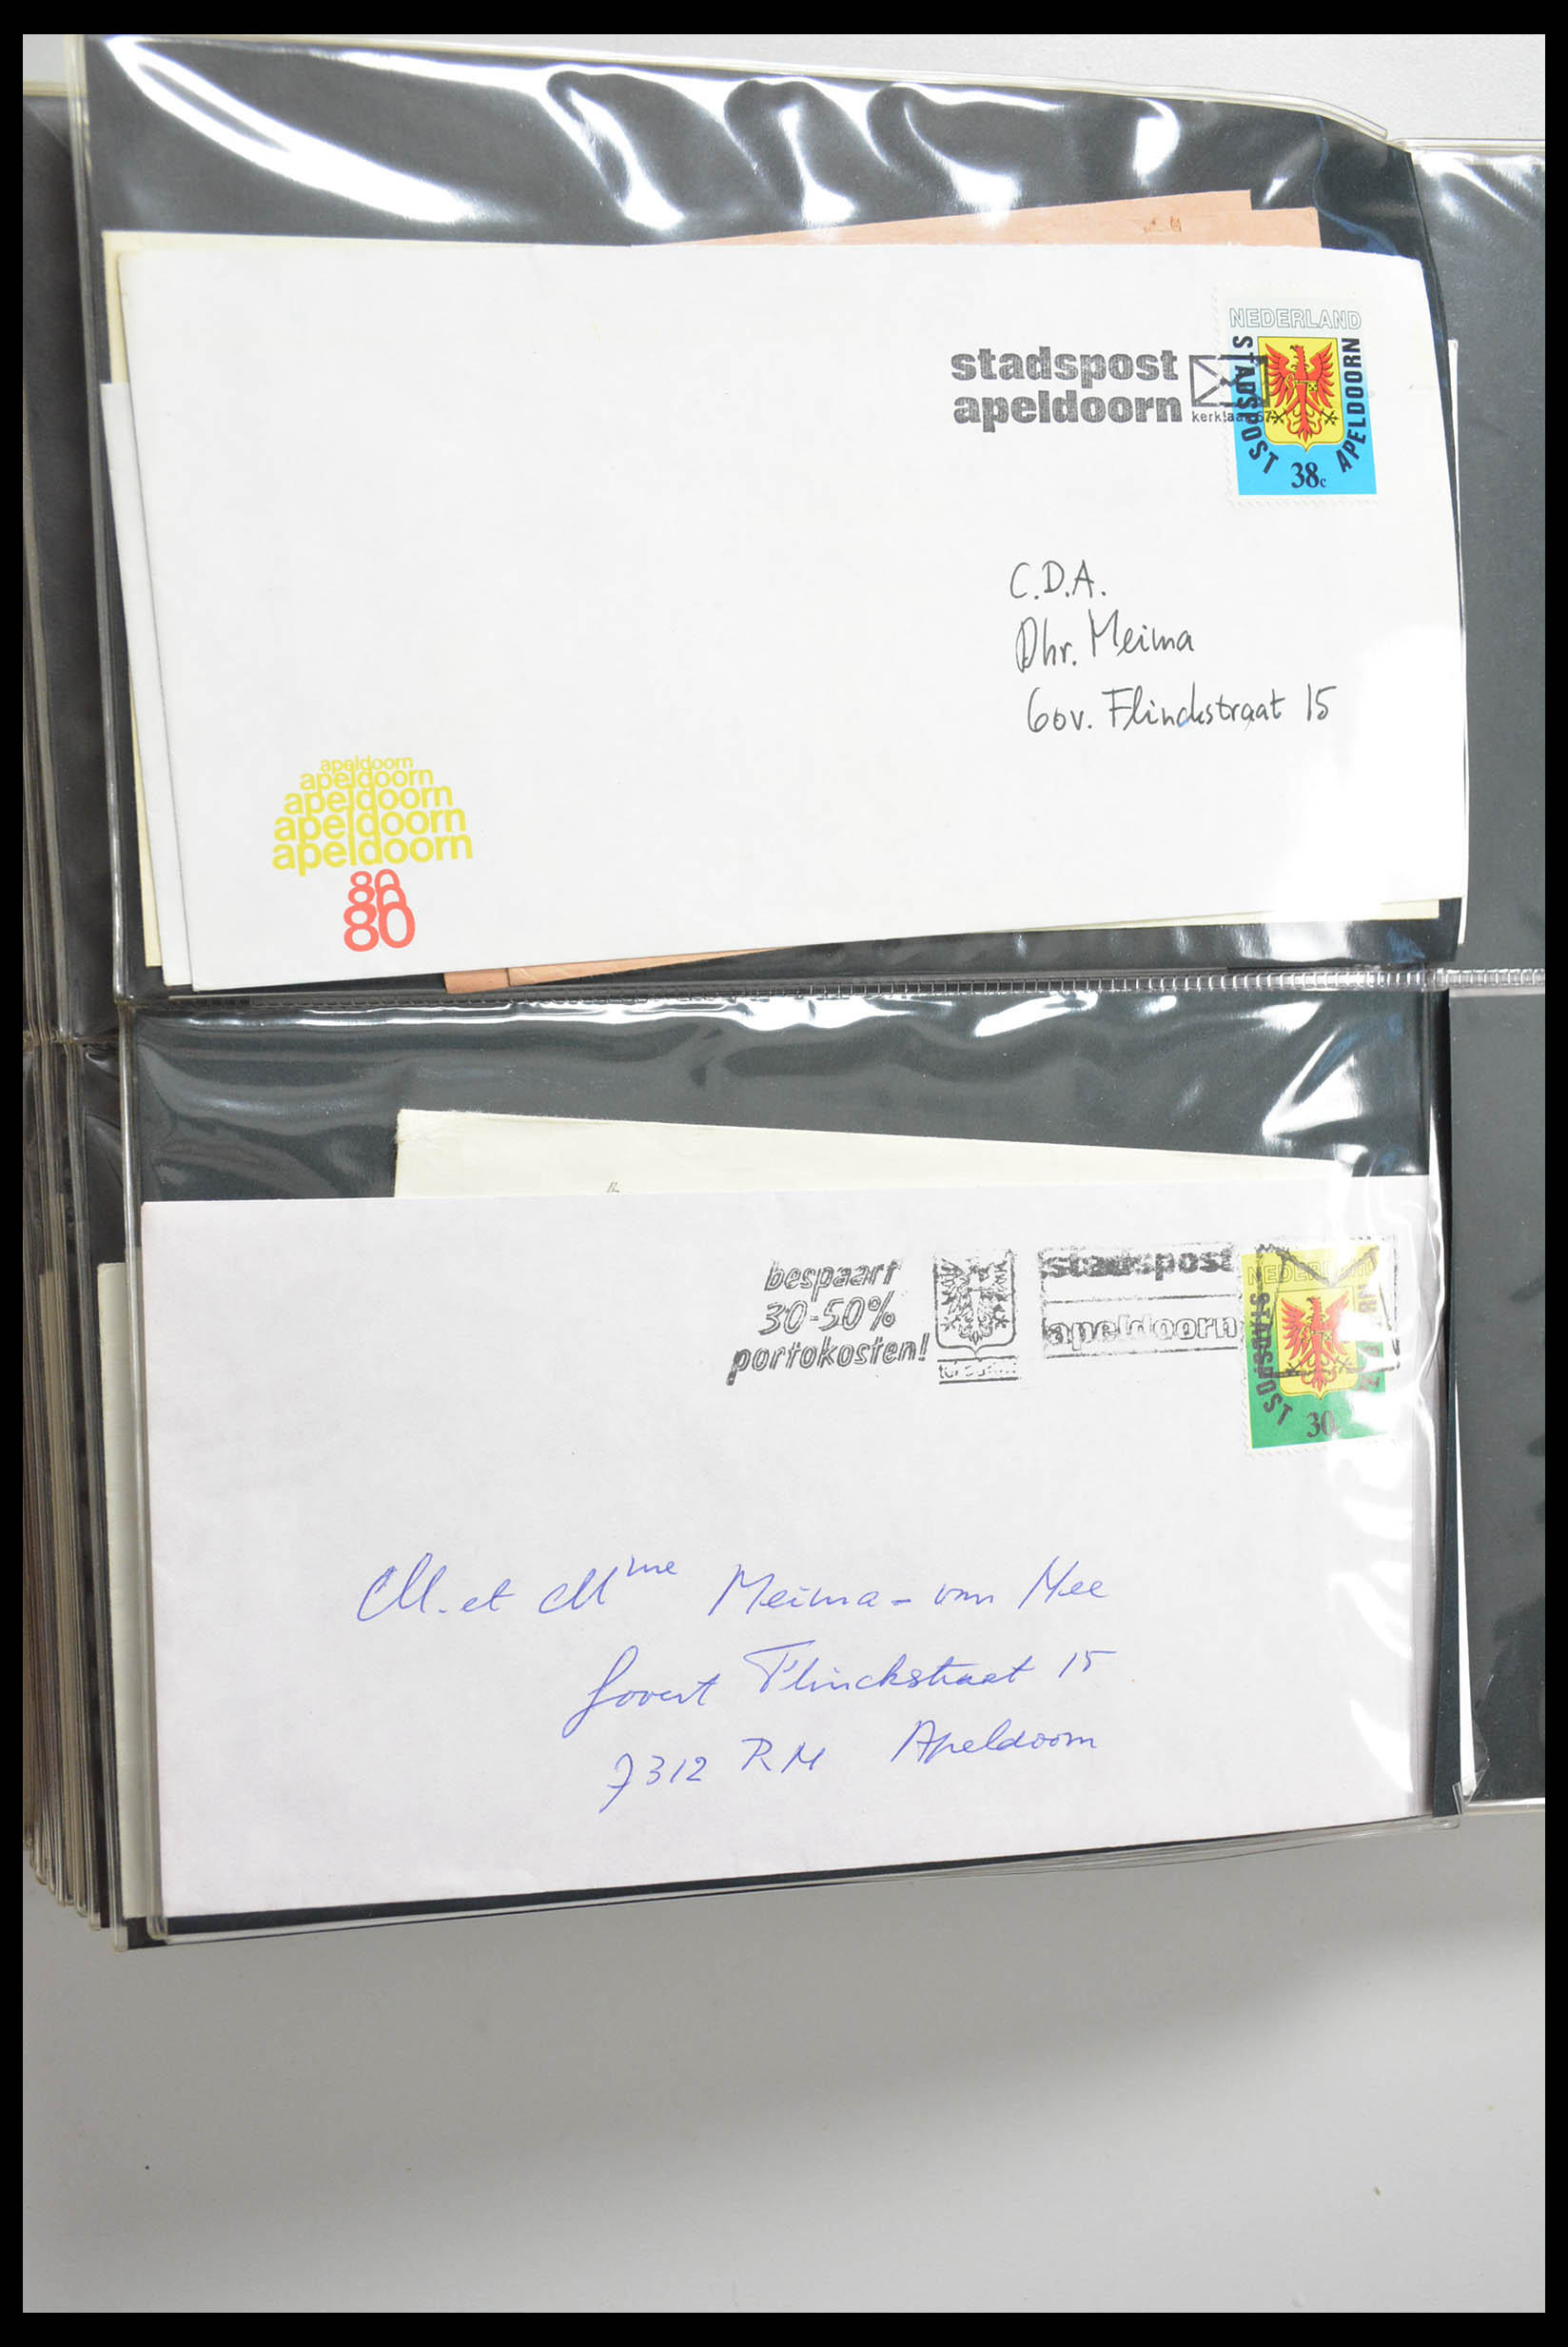 NEDERLAND
STADSPOST APELDOORN
38c
stadspost
apeldoorn
C.D.A.
Dhr. Meima
Gov. Flinckstraat 15
apeldoorn
apeldoorn
apeldoorn
apeldoorn
apeldoorn
80
80
80
bespaart
30-50%
portokosten!
stadspost
apeldoorn
NEDERLAND
STADSPOST
30
M. et Mme Meima - van Mee
Govert Flinckstraat 15
7312 RM Apeldoorn